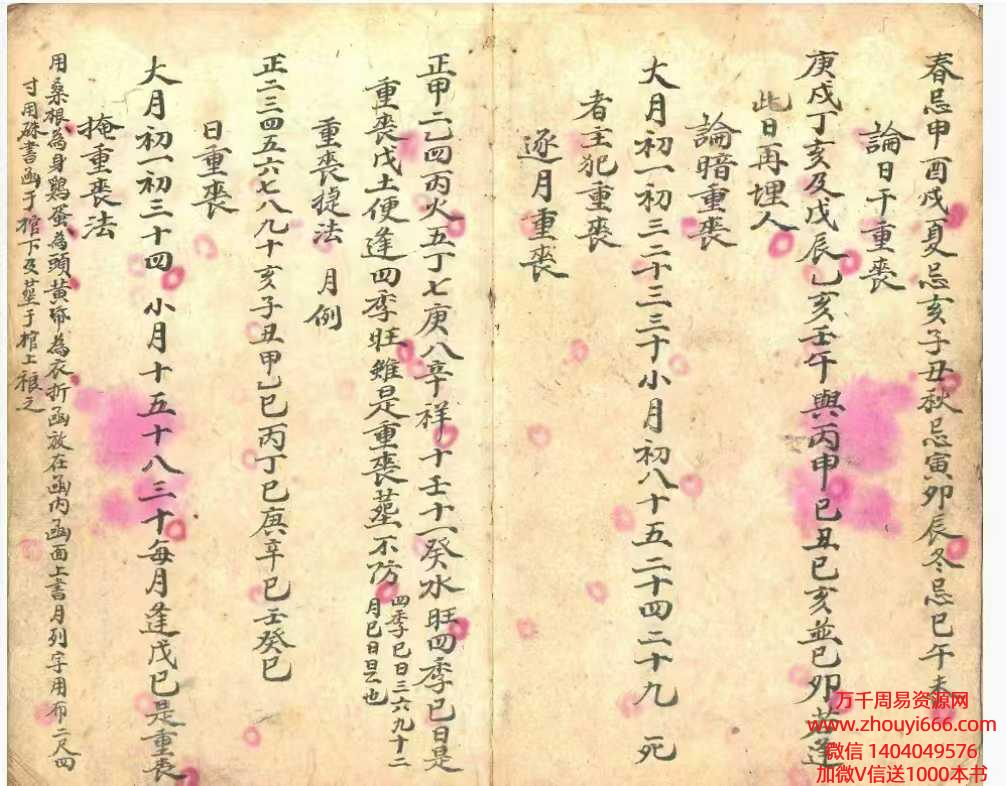 春忌申酉戌夏忌亥子丑秋忌寅卯辰冬忌巳午未
論日干重喪
庚戌丁亥及戊辰乙亥壬午與丙申巳丑巳亥並巳卯若逢
此日再埋人
論暗重喪
大月初一初三二十三三十小月初八十五二十四二十九 死
者主犯重喪
逐月重喪
正甲二乙四丙火五丁七庚八辛祥十壬十一癸水旺四季巳日是
重喪戊土便逢四季旺雖是重喪塟不防
四季巳日三六九十二
月巳日是也
重喪捷法 月例
正二三四五六七八九十亥子丑甲乙巳丙丁巳庚辛巳壬癸巳
日重喪
大月初一初三十四 小月十五十八三十每月逢戊巳是重喪
掩重喪法
用桑根為身鷄蛋為頭黃帋為衣折函放在函内函面上書月列字用布二尺四
寸用硃書函于棺下及塟于棺上禳之
万千周易资源网
www.zhouyi666.com
微信 1404049576
加微V信送1000本书